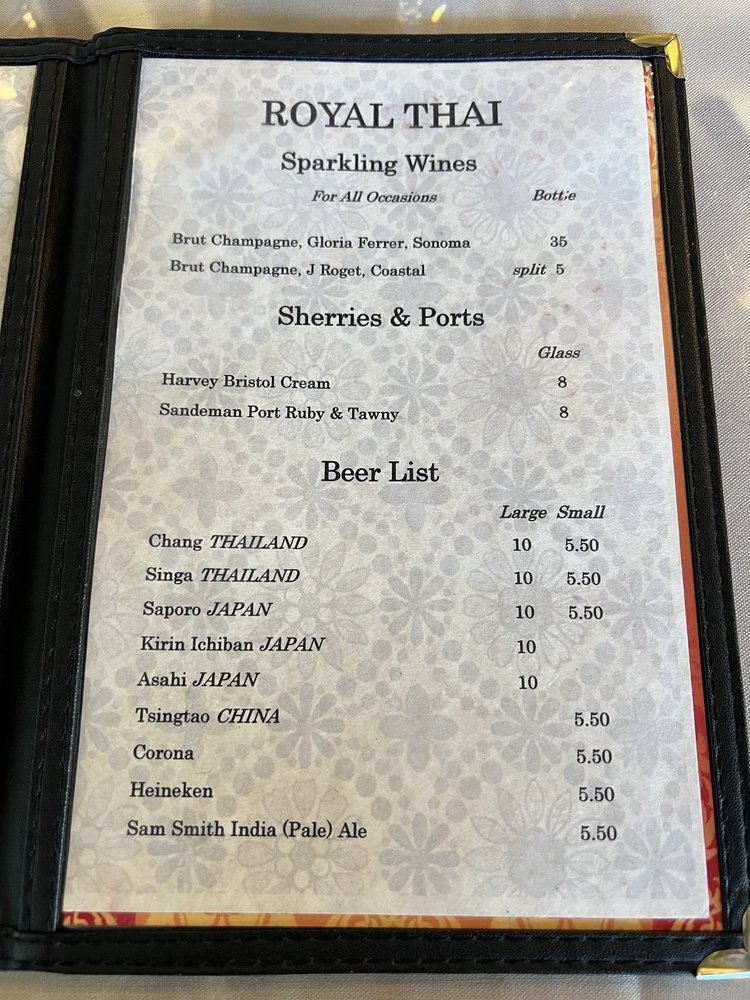 ROYAL THAI
Sparkling Wines
For All Occasions Bottle
Brut Champagne, Gloria Ferrer, Sonoma 35
Brut Champagne, J Roget, Coastal split 5
Sherries & Ports
Glass
Harvey Bristol Cream 8
Sandeman Port Ruby & Tawny 8
Beer List
Large Small
Chang THAILAND 10 5.50
Singa THAILAND 10 5.50
Saporo JAPAN 10 5.50
Kirin Ichiban JAPAN 10
Asahi JAPAN 10
Tsingtao CHINA 5.50
Corona 5.50
Heineken 5.50
Sam Smith India (Pale) Ale 5.50